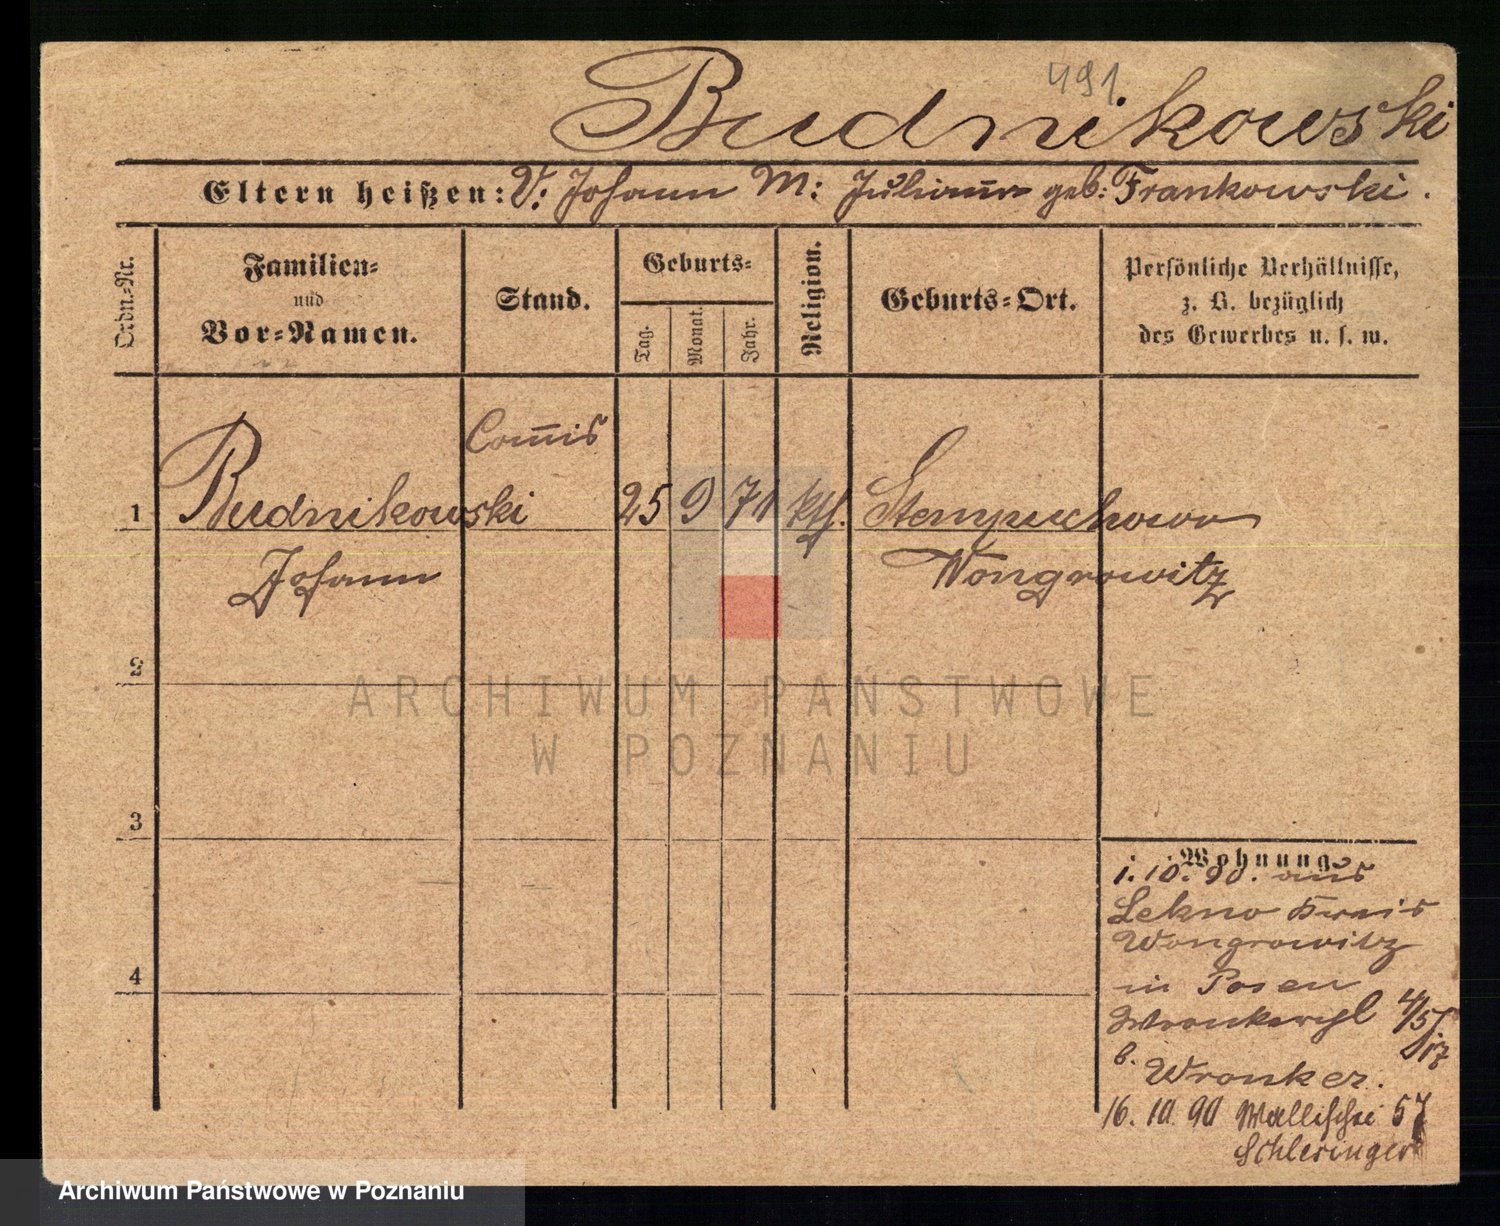 491.
Budnikowski
Eltern heißen: V: Johann M: Julianna geb: Frankowski.
Ordn.-Nr.
Familien-
und
Vor-Namen.
Stand.
Geburts-
Tag.
Monat.
Jahr.
Religion.
Geburts-Ort.
Persönliche Verhältnisse,
z. B. bezüglich
des Gewerbes u. s. w.
Com̅is
1 Budnikowski 25 9 71 kth. Stempuchowo
Johann Wongrowitz
2
3
4
Wohnung
1. 10. 90. aus
Lekno Kreis
Wongrowitz
in Posen
4/5
b. Wronker.
16. 10. 90 Wallischei 57
Schlesinger
ARCHIWUM PAŃSTWOWE
W POZNANIU
Archiwum Państwowe w Poznaniu